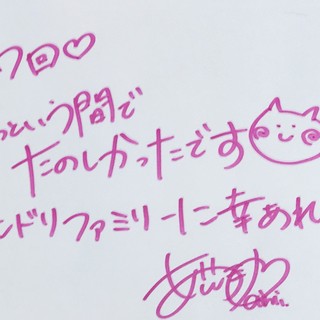 7回♡
っという間で
たのしかったです
ンドリファミリーに幸あれ